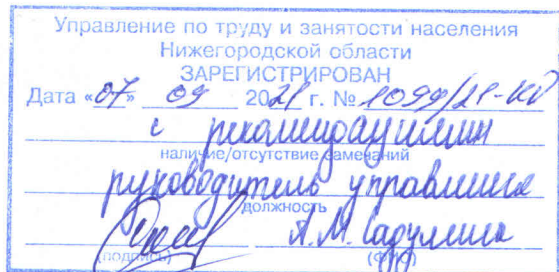 Управление по труду и занятости населения
Нижегородской области
ЗАРЕГИСТРИРОВАН
Дата «07» 09 2021 г. № 1099/21-КД
с рекомендациями
наличие/отсутствие замечаний
руководитель управления
должность
А.М.
(подпись) (ФИО)